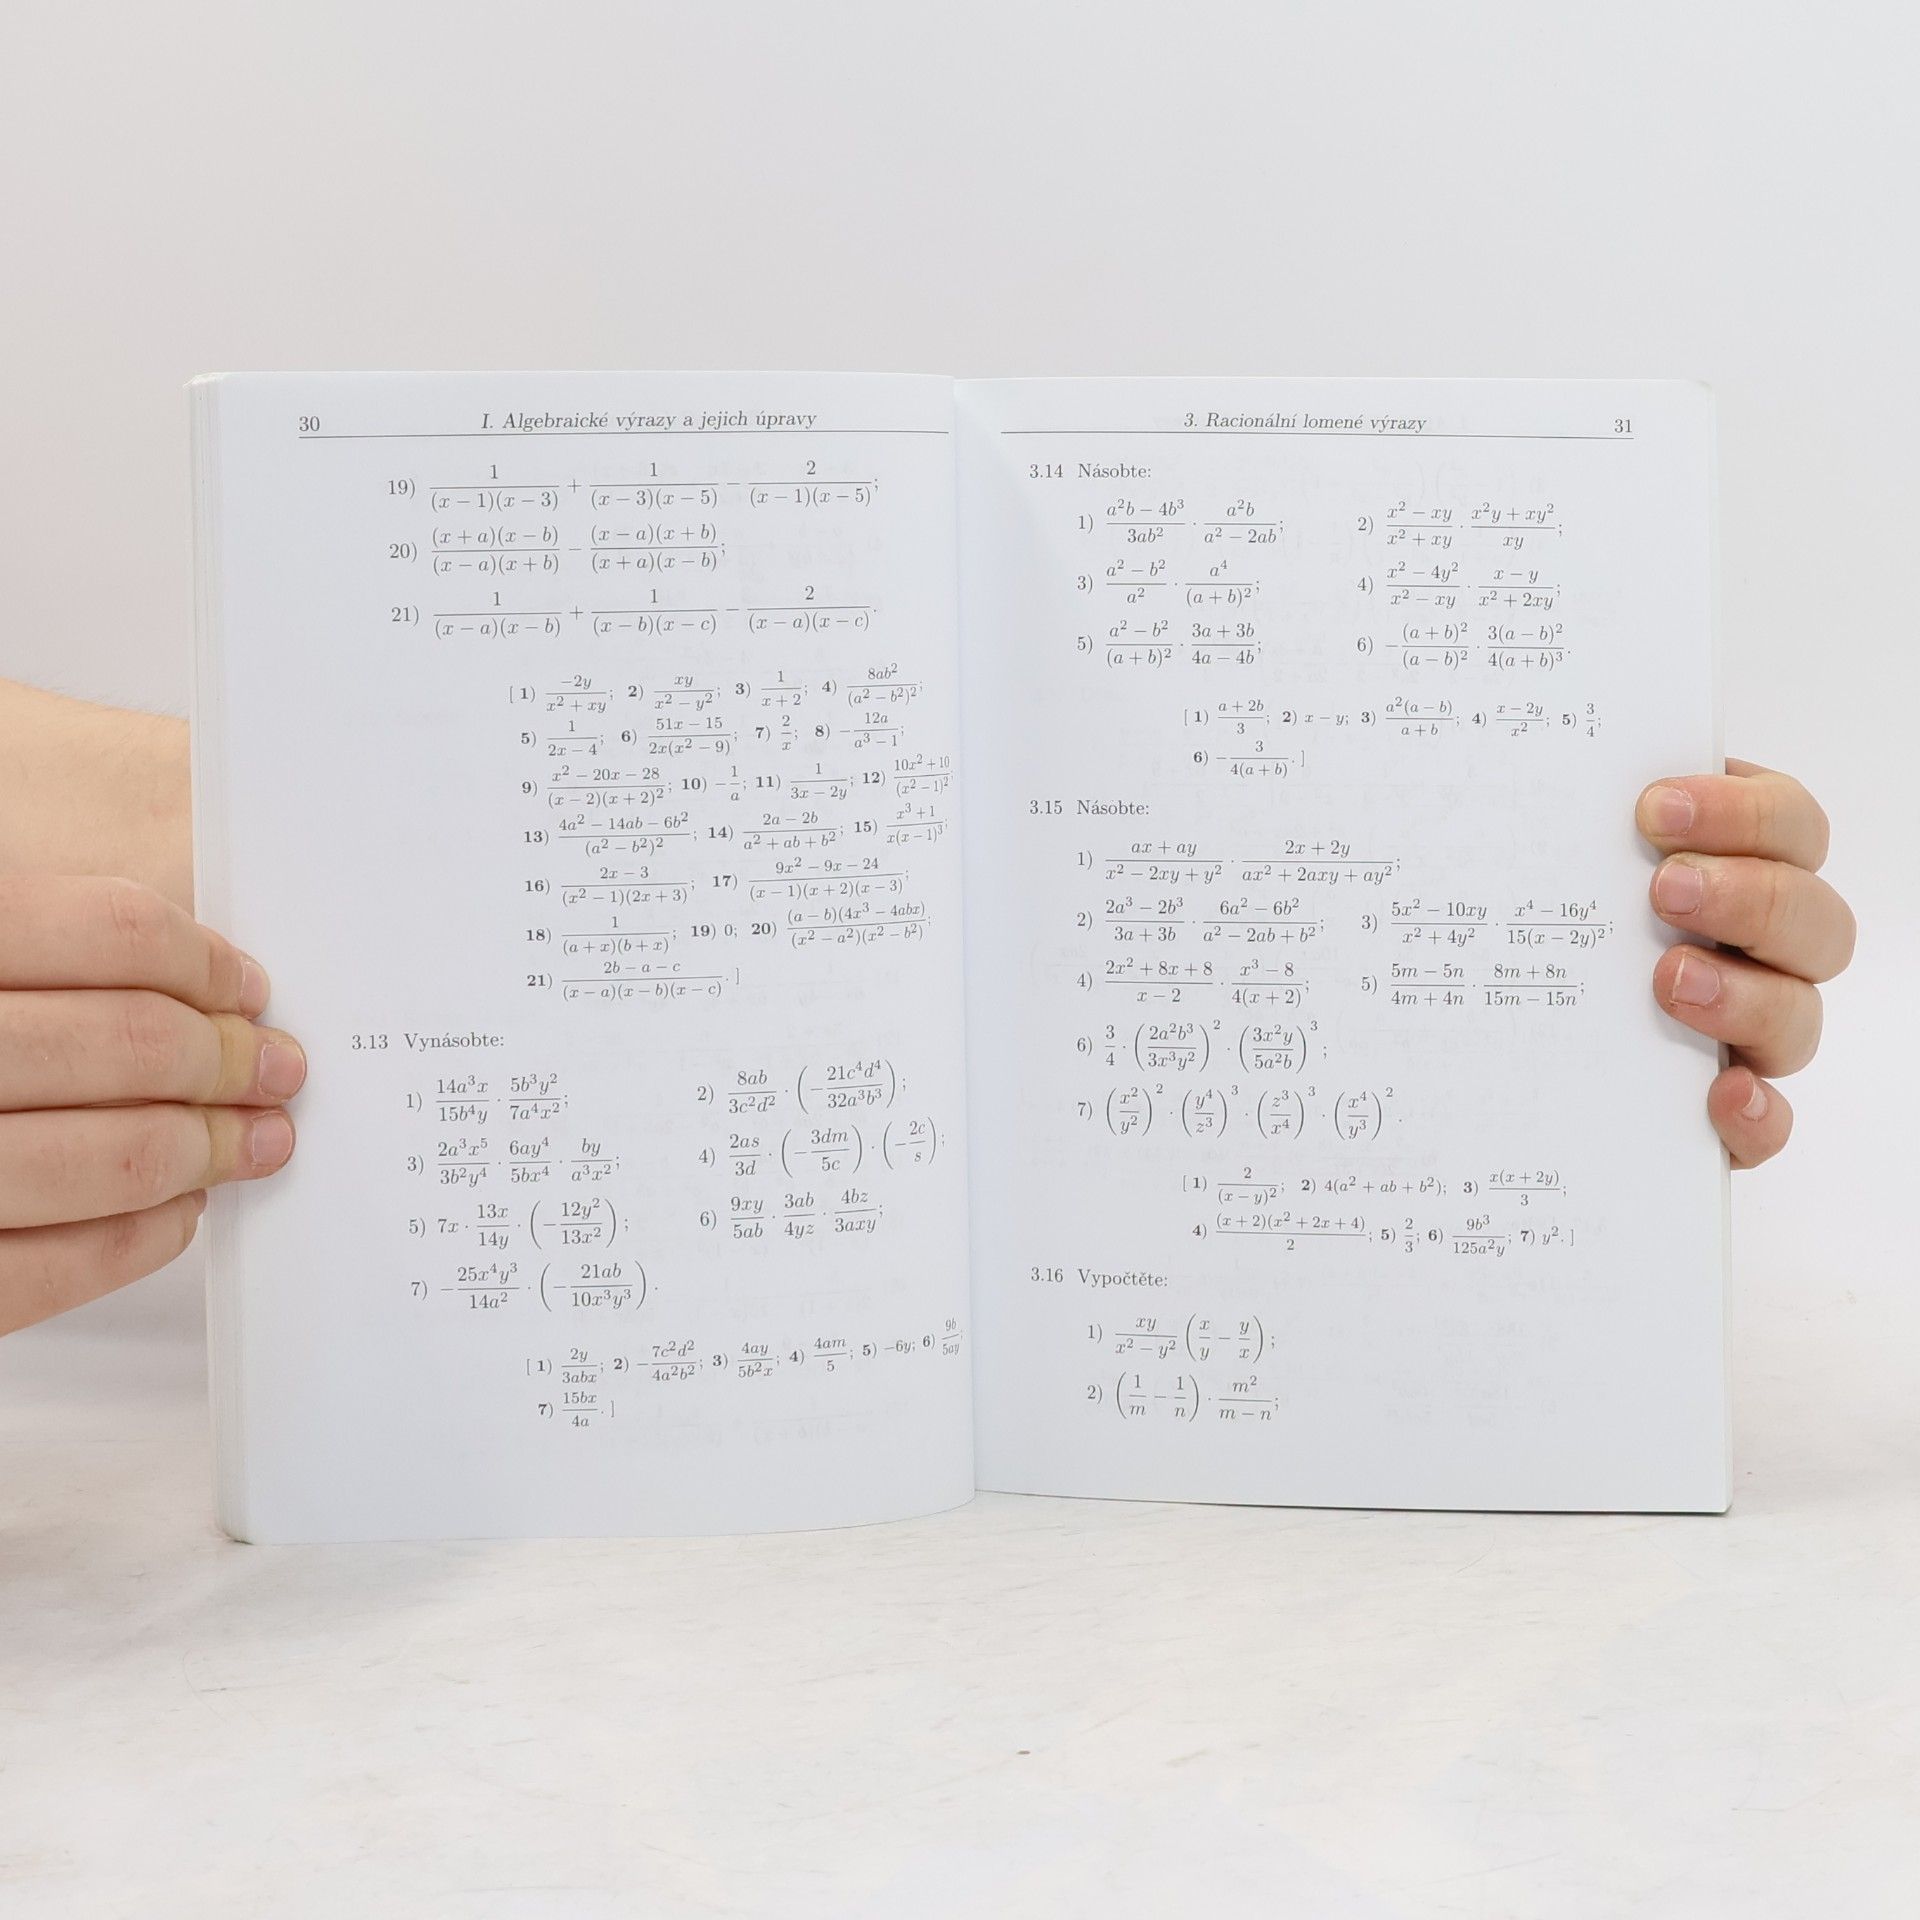 30 I. Algebraické výrazy a jejich úpravy
19) 1/((x − 1)(x − 3)) + 1/((x − 3)(x − 5)) − 2/((x − 1)(x − 5));
20) ((x + a)(x − b))/((x − a)(x + b)) − ((x − a)(x + b))/((x + a)(x − b));
21) 1/((x − a)(x − b)) + 1/((x − b)(x − c)) − 2/((x − a)(x − c)).
[ 1) (−2y)/(x² + xy); 2) xy/(x² − y²); 3) 1/(x + 2); 4) 8ab²/(a² − b²)²;
5) 1/(2x − 4); 6) (51x − 15)/(2x(x² − 9)); 7) 2/x; 8) −12a/(a³ − 1);
9) (x² − 20x − 28)/((x − 2)(x + 2)²); 10) −1/a; 11) 1/(3x − 2y); 12) (10x² + 10)/(x² − 1)²;
13) (4a² − 14ab − 6b²)/(a² − b²)²; 14) (2a − 2b)/(a² + ab + b²); 15) (x³ + 1)/(x(x − 1)³);
16) (2x − 3)/((x² − 1)(2x + 3)); 17) (9x² − 9x − 24)/((x − 1)(x + 2)(x − 3));
18) 1/((a + x)(b + x)); 19) 0; 20) ((a − b)(4x³ − 4abx))/((x² − a²)(x² − b²));
21) (2b − a − c)/((x − a)(x − b)(x − c)). ]
3.13 Vynásobte:
1) 14a³x/15b⁴y · 5b³y²/7a⁴x²; 2) 8ab/3c²d² · (−21c⁴d⁴/32a³b³);
3) 2a³x⁵/3b²y⁴ · 6ay⁴/5bx⁴ · by/a³x²; 4) 2as/3d · (−3dm/5c) · (−2c/s);
5) 7x · 13x/14y · (−12y²/13x²); 6) 9xy/5ab · 3ab/4yz · 4bz/3axy;
7) −25x⁴y³/14a² · (−21ab/10x³y³).
[ 1) 2y/3abx; 2) −7c²d²/4a²b²; 3) 4ay/5b²x; 4) 4am/5; 5) −6y; 6) 9b/5ay;
7) 15bx/4a. ]
3. Racionální lomené výrazy 31
3.14 Násobte:
1) (a²b − 4b³)/3ab² · a²b/(a² − 2ab); 2) (x² − xy)/(x² + xy) · (x²y + xy²)/xy;
3) (a² − b²)/a² · a⁴/(a + b)²; 4) (x² − 4y²)/(x² − xy) · (x − y)/(x² + 2xy);
5) (a² − b²)/(a + b)² · (3a + 3b)/(4a − 4b); 6) −(a + b)²/(a − b)² · 3(a − b)²/4(a + b)³.
[ 1) (a + 2b)/3; 2) x − y; 3) a²(a − b)/(a + b); 4) (x − 2y)/x²; 5) 3/4;
6) −3/4(a + b). ]
3.15 Násobte:
1) (ax + ay)/(x² − 2xy + y²) · (2x + 2y)/(ax² + 2axy + ay²);
2) (2a³ − 2b³)/(3a + 3b) · (6a² − 6b²)/(a² − 2ab + b²); 3) (5x² − 10xy)/(x² + 4y²) · (x⁴ − 16y⁴)/15(x − 2y)²;
4) (2x² + 8x + 8)/(x − 2) · (x³ − 8)/4(x + 2); 5) (5m − 5n)/(4m + 4n) · (8m + 8n)/(15m − 15n);
6) 3/4 · (2a²b³/3x³y²)² · (3x²y/5a²b)³;
7) (x²/y²)² · (y⁴/z³)³ · (z³/x⁴)³ · (x⁴/y³)².
[ 1) 2/(x − y)²; 2) 4(a² + ab + b²); 3) x(x + 2y)/3;
4) (x + 2)(x² + 2x + 4)/2; 5) 2/3; 6) 9b³/125a²y; 7) y². ]
3.16 Vypočtěte:
1) xy/(x² − y²) (x/y − y/x);
2) (1/m − 1/n) · m²/(m − n);